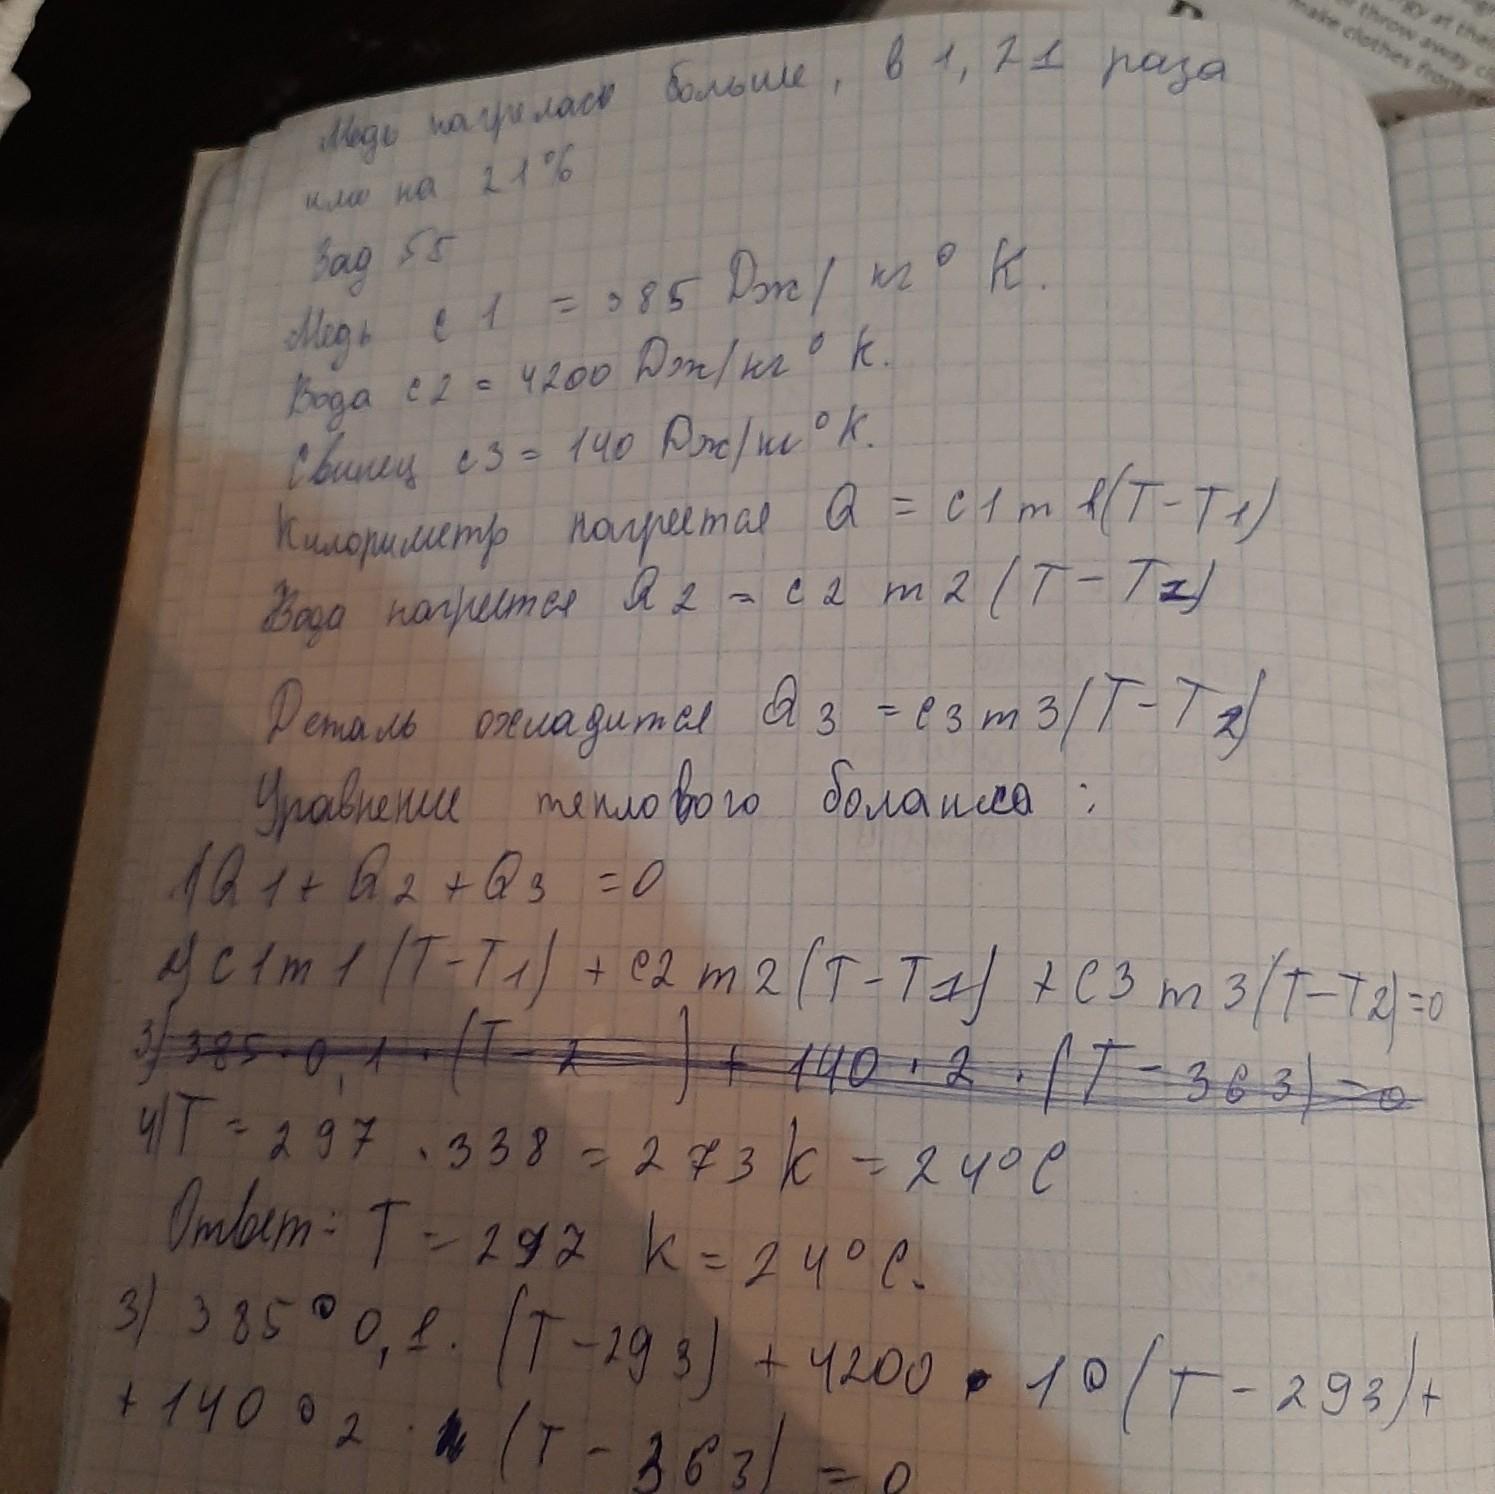 Медь нагрелась больше, в 1,21 раза
или на 21%
Зад 55
Медь с1 = 385 Дж/кг°К.
Вода с2 = 4200 Дж/кг°К.
Свинец с3 = 140 Дж/кг°К.
Килориметр нагреется Q = с1m1(T-T1)
Вода нагреется Q2 = с2 m2 (T-T1)
Деталь охладится Q3 = с3m3(T-T2)
Уравнение теплового боланса:
1) Q1 + Q2 + Q3 = 0
2) с1m1 (T-T1) + с2m2 (T-T1) + с3m3(T-T2)=0
3) 385·0,1·(T-2 ) + 140·2·(T-363)=0
4) T = 297.338 = 273К = 24°С
Ответ: T = 297 К = 24°С.
3) 385·0,1·(T-293) + 4200·10(T-293)+
+140·2·(T-363) = 0
energy at that
or throw away cl
make clothes from re